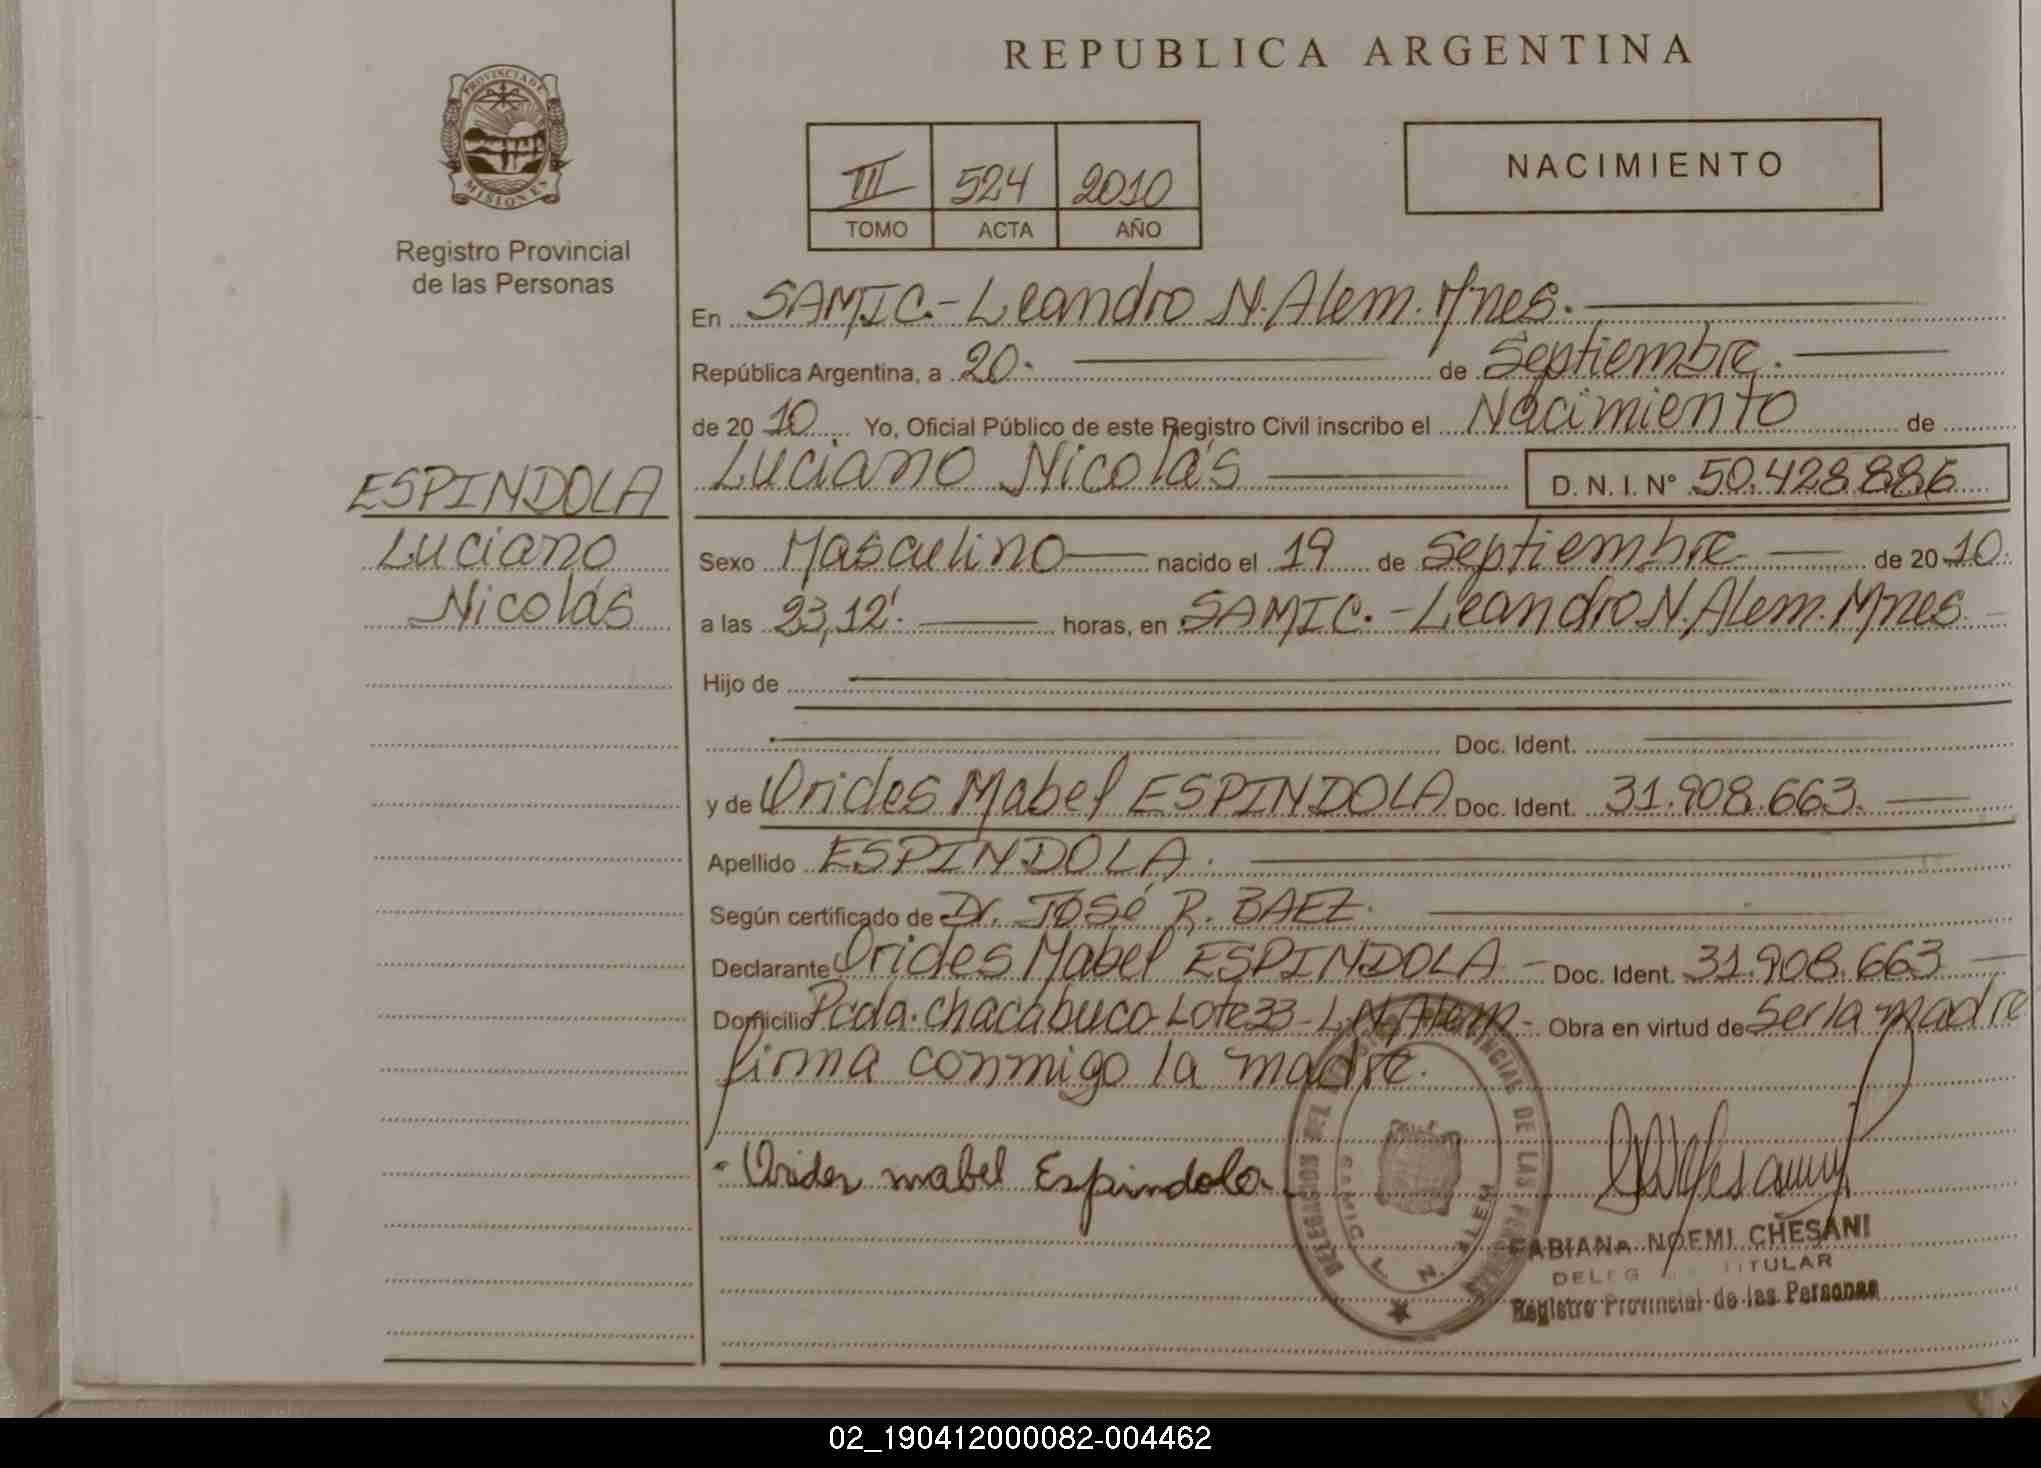 REPUBLICA ARGENTINA
PROVINCIA DE
MISIONES
Registro Provincial
de las Personas
III 524 2010
TOMO ACTA AÑO
NACIMIENTO
En SAMIC.- Leandro N. Alem. Mnes.
República Argentina, a 20. de Septiembre.
de 20 10. Yo, Oficial Público de este Registro Civil inscribo el Nacimiento de
Luciano Nicolás D. N. I. N° 50.428.886
ESPINDOLA
Luciano
Nicolás
Sexo Masculino nacido el 19 de Septiembre de 20 10.
a las 23,12'. horas, en SAMIC. - Leandro N. Alem. Mnes
Hijo de
Doc. Ident.
y de Orides Mabel ESPINDOLA Doc. Ident. 31.908.663.
Apellido ESPINDOLA.
Según certificado de Dr. José R. BAEZ.
Declarante Orides Mabel ESPINDOLA - Doc. Ident. 31.908.663
Domicilio Pcda. Chacabuco- Lote 33 - L.N. Alem - Obra en virtud de ser la madre
firma conmigo la madre.
Orides mabel Espindola
PROVINCIAL DE LAS PERSONAS
SAMIC L. N. ALEM
FABIANA NOEMI CHESANI
TITULAR
Registro Provincial de las Personas
02_190412000082-004462